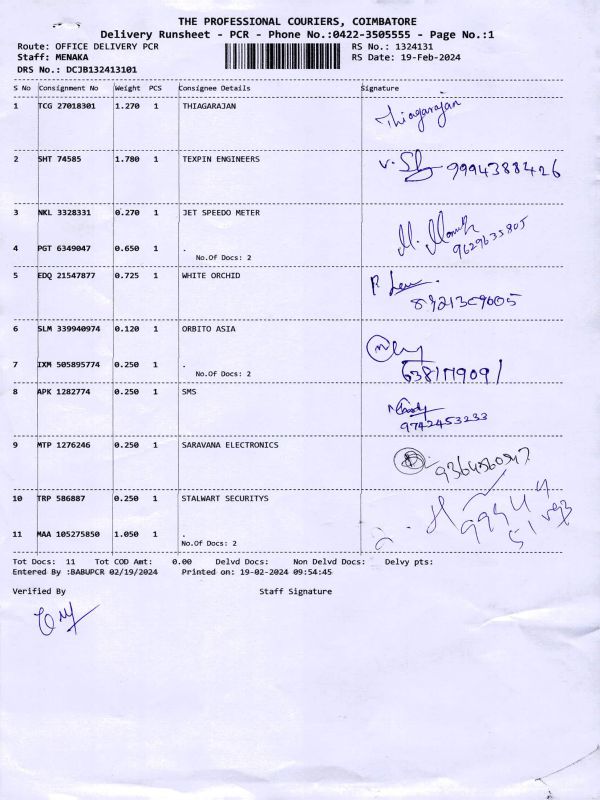 THE PROFESSIONAL COURIERS, COIMBATORE
Delivery Runsheet - PCR - Phone No.:0422-3505555 - Page No.:1
Route: OFFICE DELIVERY PCR RS No.: 1324131
Staff: MENAKA RS Date: 19-Feb-2024
DRS No.: DCJB132413101
S No Consignment No Weight PCS Consignee Details Signature
1 TCG 27018301 1.270 1 THIAGARAJAN Thiagarajan
2 SHT 74585 1.780 1 TEXPIN ENGINEERS 9994388426
3 NKL 3328331 0.270 1 JET SPEEDO METER
4 PGT 6349047 0.650 1 . 9629635805
No.Of Docs: 2
5 EDQ 21547877 0.725 1 WHITE ORCHID
6 SLM 339940974 0.120 1 ORBITO ASIA
7 IXM 505895774 0.250 1 .
No.Of Docs: 2
8 APK 1282774 0.250 1 SMS
9742453233
9 MTP 1276246 0.250 1 SARAVANA ELECTRONICS
10 TRP 586887 0.250 1 STALWART SECURITYS
11 MAA 105275850 1.050 1 .
No.Of Docs: 2
Tot Docs: 11 Tot COD Amt: 0.00 Delvd Docs: Non Delvd Docs: Delvy pts:
Entered By :BABUPCR 02/19/2024 Printed on: 19-02-2024 09:54:45
Verified By Staff Signature